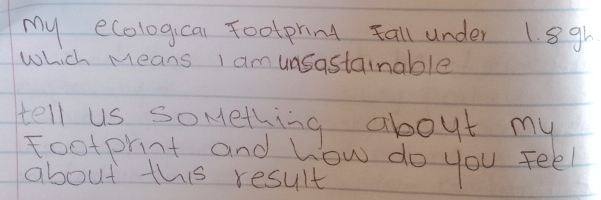 my ecological Footprint Fall under 1.8 gh
which means I am unsastainable
tell us something about my
Footprint and how do you Feel
about this result